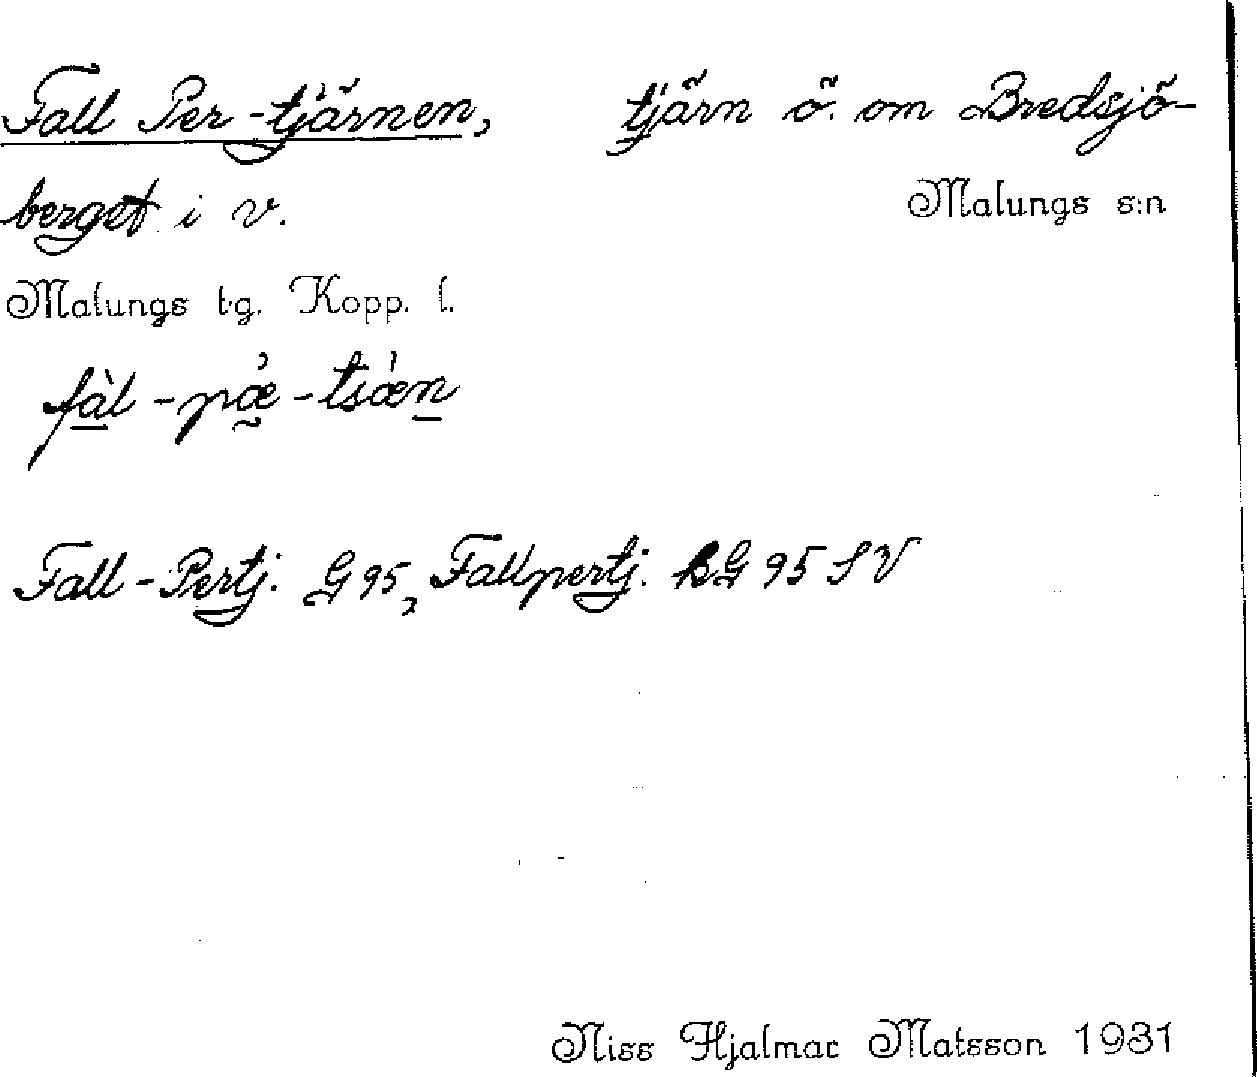 Fall Per-tjärnen, tjärn ö. om Bredsjö-
berget i v. Malungs s:n
Malungs tg. Kopp. l.
fàl-pæ̀-tsæ̀n
Fall-Pertj. G95, Fallpertj. kG 95 SV
Niss Hjalmar Matsson 1931